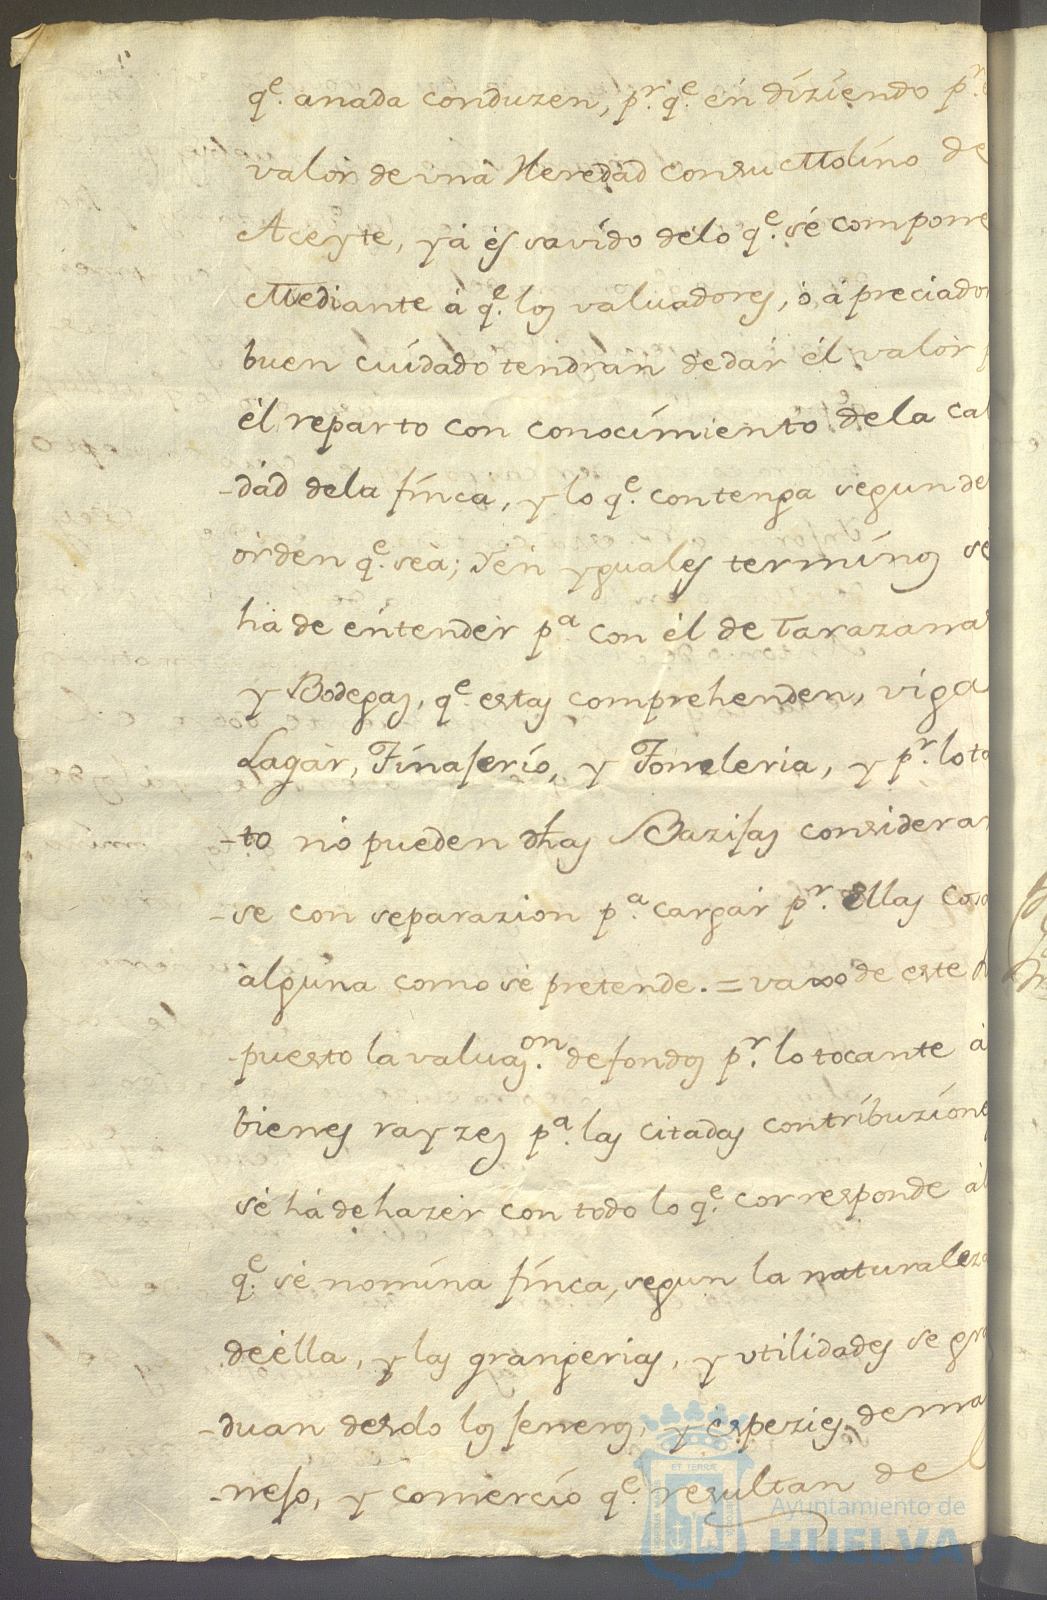 q.e anada conduzen, p.r q.e én diziendo p.r
valór de vna Heredad con su Molino de
Aceyte, yá és savido délo q.e sé compone
Mediante á q.e los valuadores, ó ápreciador
buen cuidado tendrán de dár él valór
él reparto con conocimiento de la cal
-dád dela finca, y lo q.e contenga segun de
órden q.e seá; y én yguales terminos sé
há de énténder p.a con él de Tarazanas
y Bodegas, q.e estas comprehenden, viga
Lagár, Tinaferio, y Toneleria, y p.r lo ta
-to nó pueden dhas Bazijas considerar
-se con separazion p.a cargár p.r Ellas cosa
álguna como sé pretende. = vaxo de este
-puesto la valuaz.on de fondos p.r lo tocante á
bienes rayzes p.a las citadas contribuzione
sé há de hazér con todo lo q.e corresponde ál
q.e sé nomina finca, segun la naturaleza
de élla, y las grangerias, y vtilidades se gra
-duan desdo los feneros, y espezies, de ma
-nejo, y comercio q.e resultan de
Ayuntamiento de
HUELVA